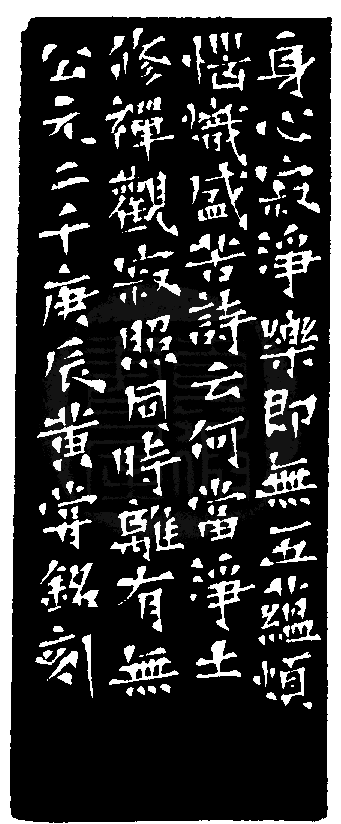 身心寂淨樂即無五蘊煩
惱熾盛苦詩云何當淨土
修禪觀寂照同時離有無
公元二千庚辰黄嘗銘刻